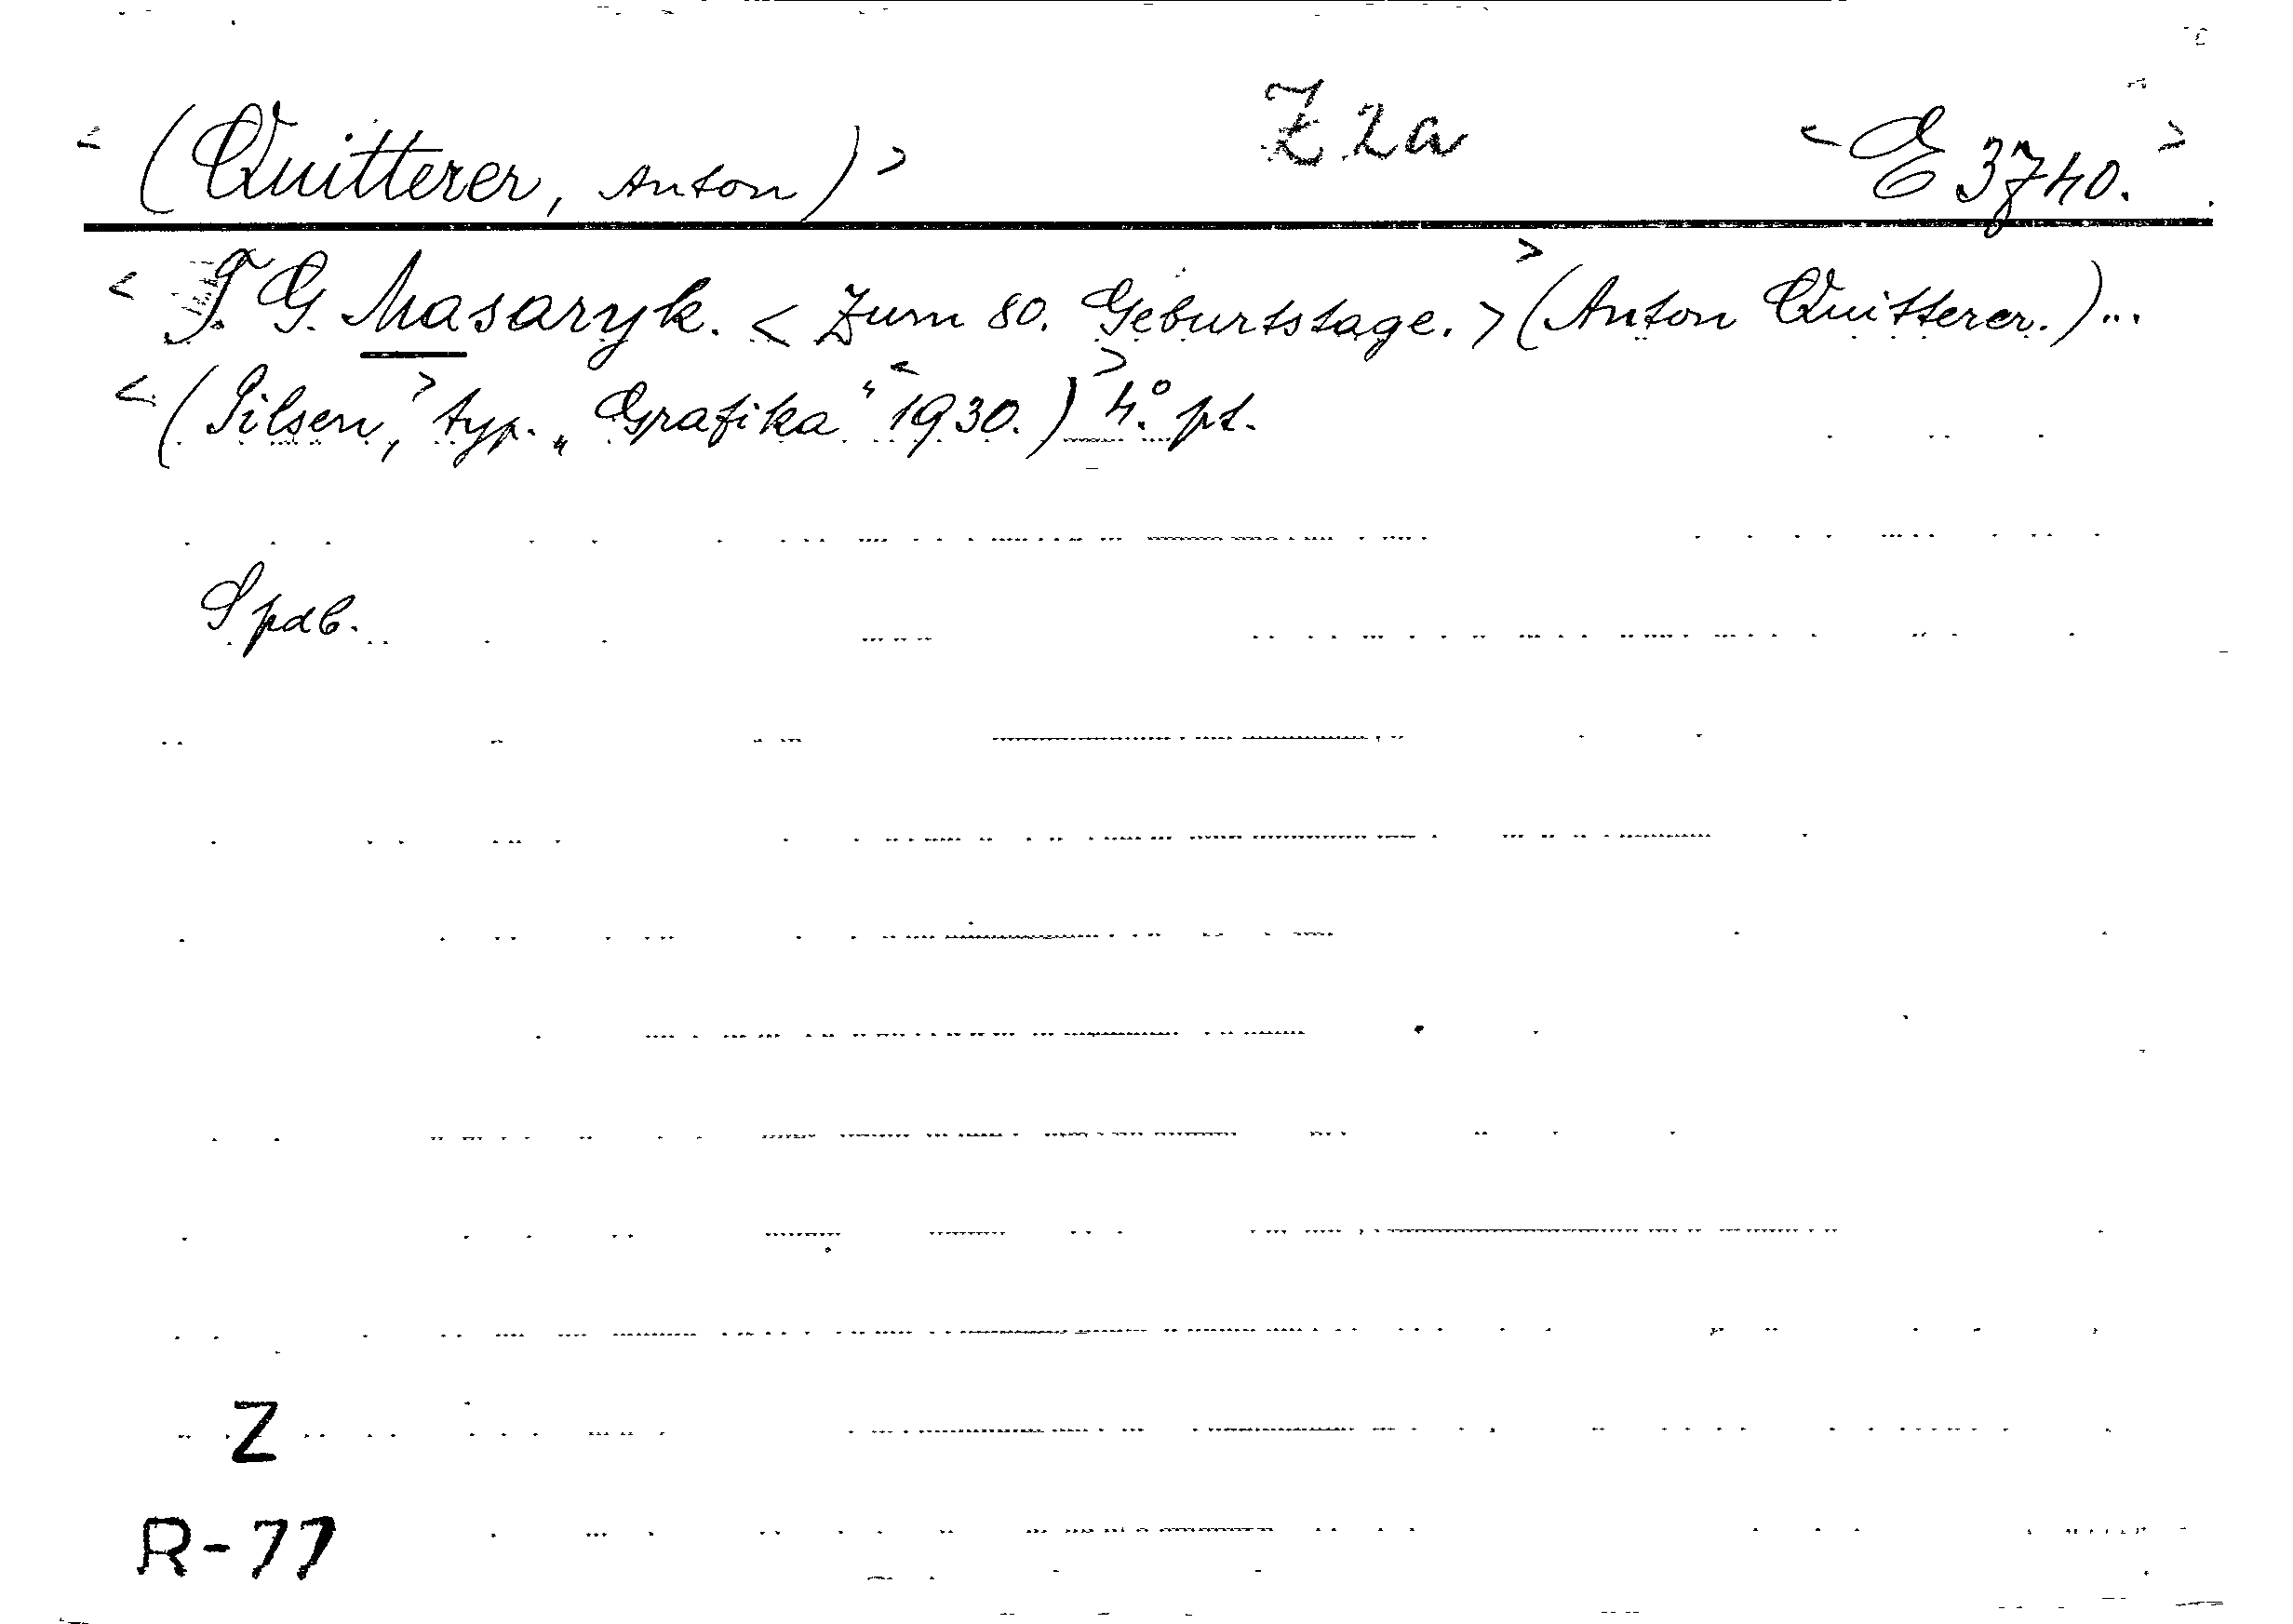 < (Quitterer, Anton) > Z 2a < E 3740. >
< T. G. Masaryk. < Zum 80. Geburtstage. > > (Anton Quitterer.)...
< (Pilsen, > typ. „Grafika“ < 1930.) > 4.° pt.
Spdb.
Z
R-77